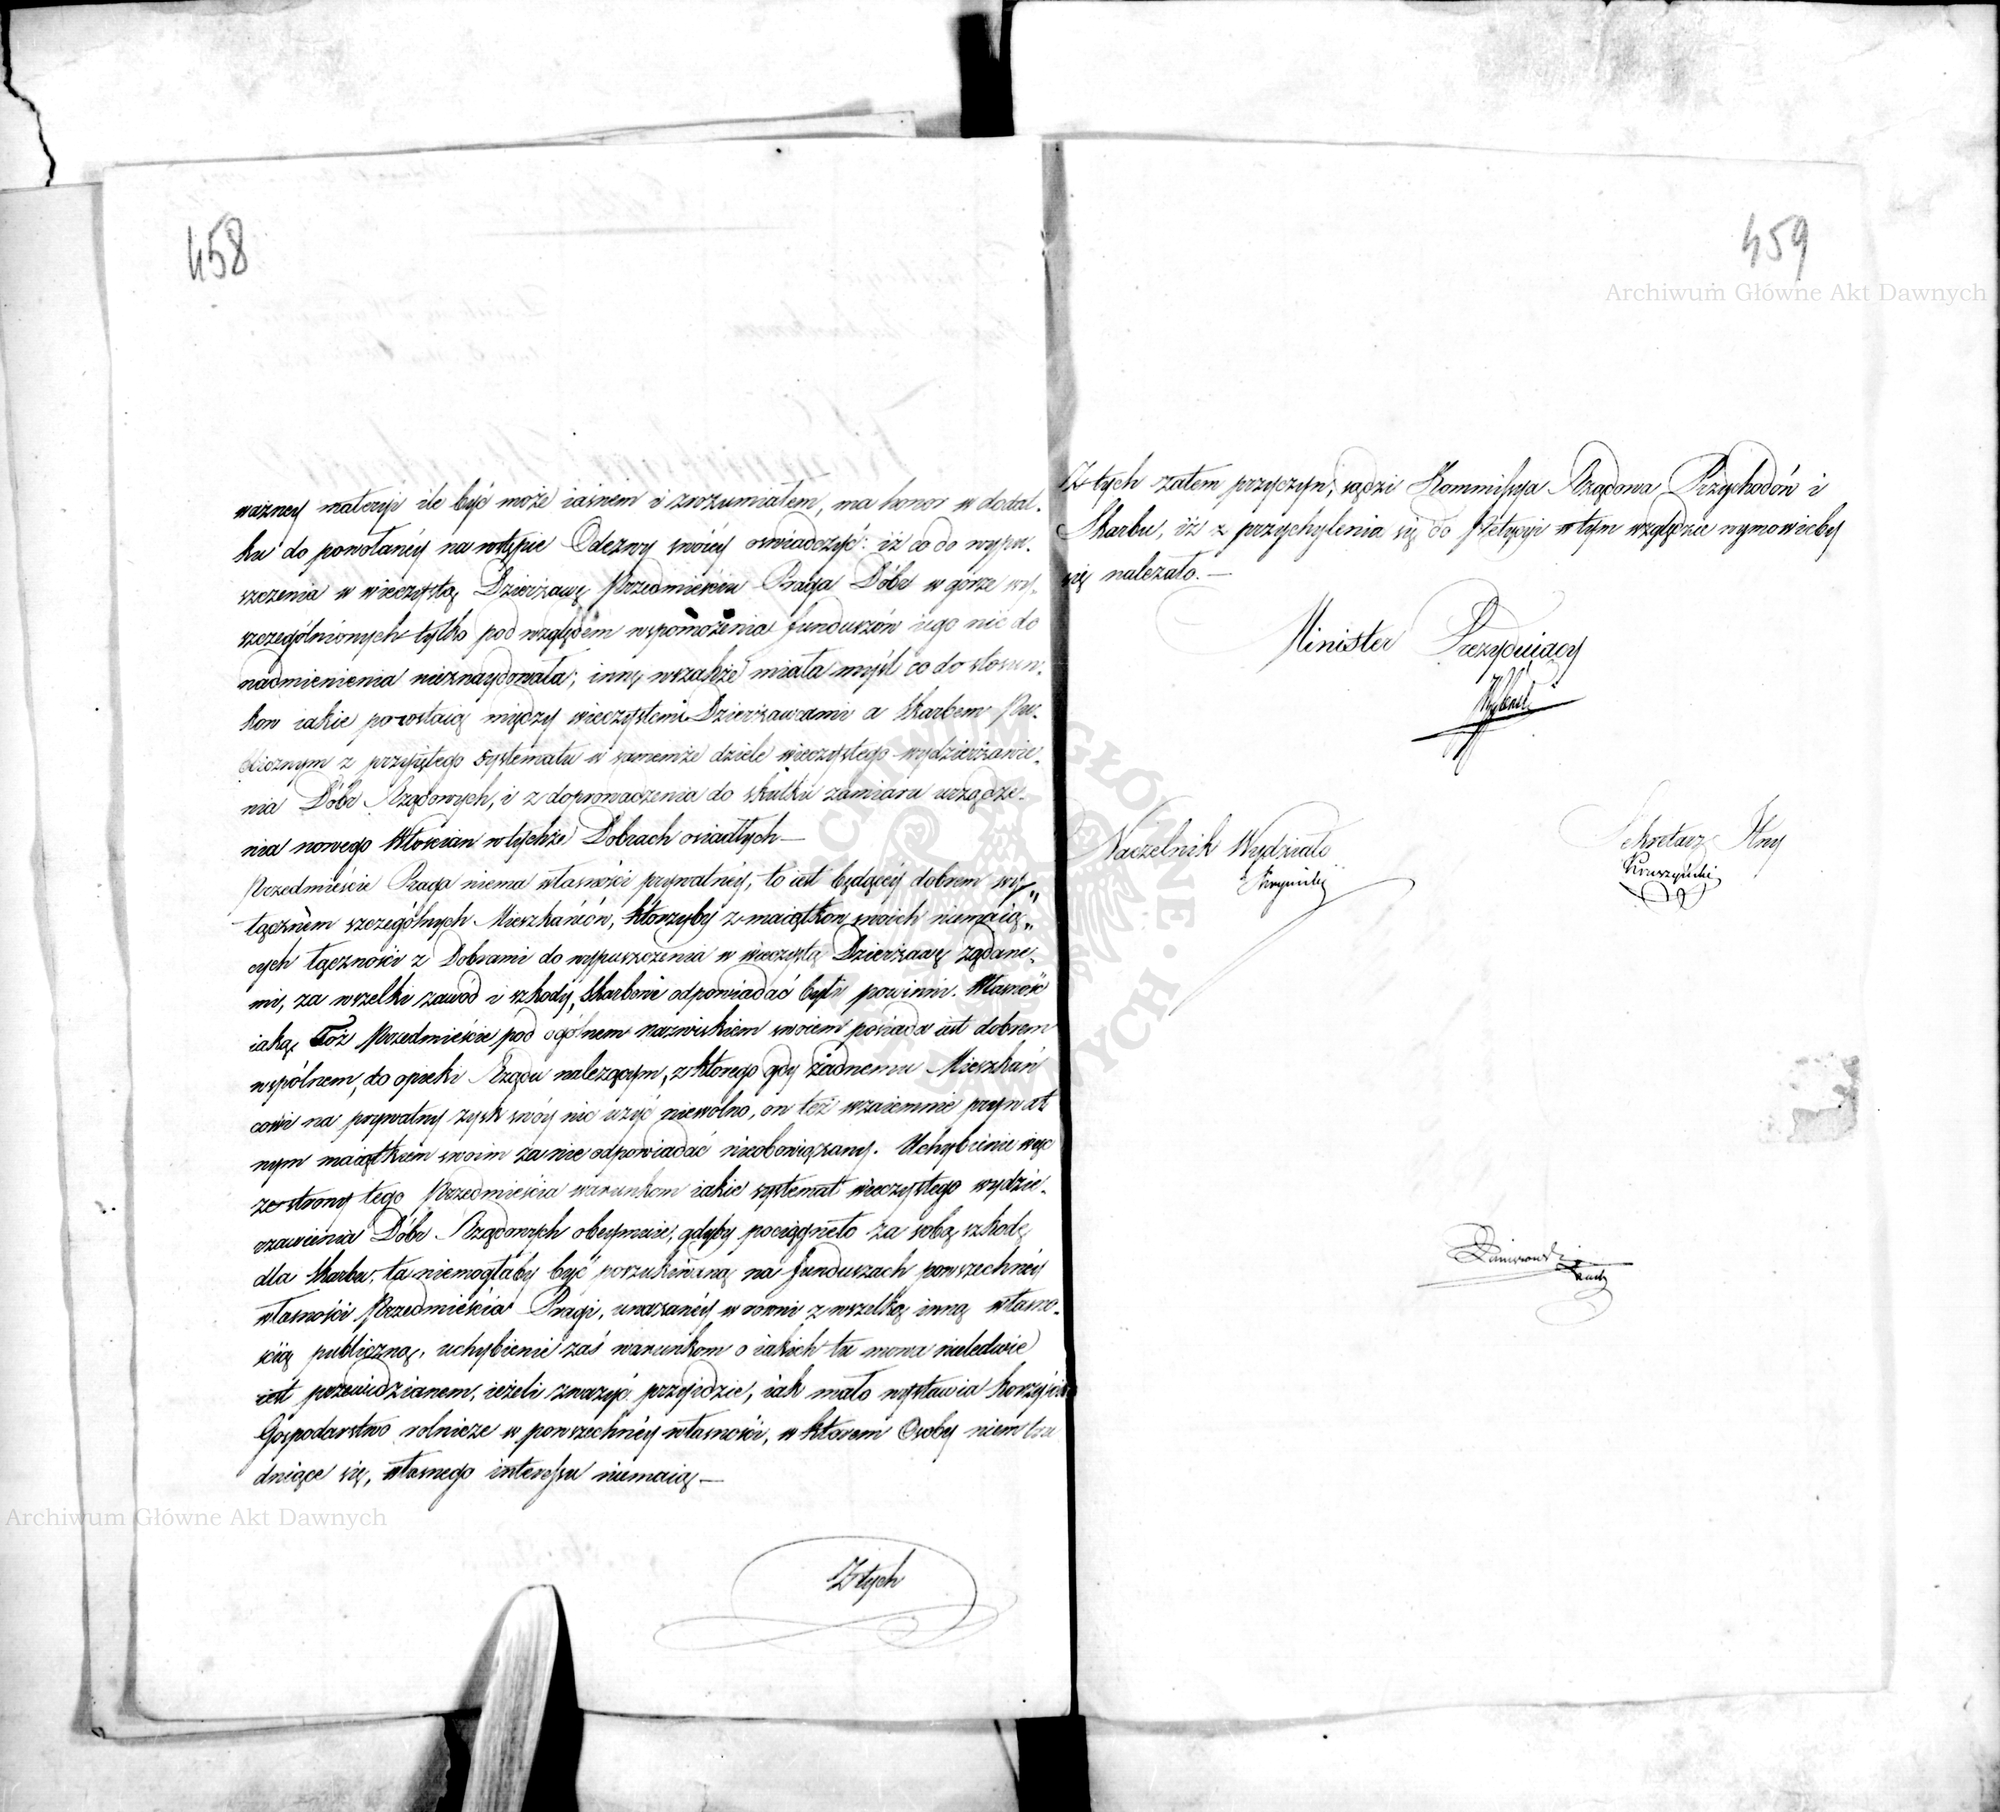 458
ważney materyi ile być może iasnem i zrozumiałem, ma honor w dodat-
ku do powołanéy na wstępie Odezwy swoiéy oświadczyć: iż co do wypu-
szczenia w wieczystą Dzierżawę Przedmieściu Praga Dóbr w górze wy-
szczególnionych tylko pod względem wspomożenia funduszów iego nic do
nadmienienia nieznaydowała; inną wszakże miała myśl co do stosun-
kow iakie powstaią między wieczystemi Dzierżawcami a Skarbem Pu-
blicznym z przyiętego systematu w samemże dziele wieczystego wydzierżawie-
nia Dóbr Rządowych, i z doprowadzenia do skutku zamiaru urządze-
nia nowego Włościan w tychże Dobrach osiadłych —
Przedmieście Praga niema własności prywatnéy, to iest będącéy dobrem wy-
łącznem szczególnych Mieszkańców, którzyby z maiątkow swoich niemaią-
cych łączności z Dobrami do wypuszczenia w wieczystą Dzierżawę żądane-
mi, za wszelki zawód i szkody, Skarbowi odpowiadać byli powinni. Własność
iaką Toż Przedmieście pod ogólnem nazwiskiem swoiem posiada iest dobrem
wspólnem, do opieki Rządu należącym, z którego gdy żadnemu Mieszkań
cowi na prywatny zysk swóy nic użyć niewolno, on też wzaiemnie prywat
nym maiątkiem swoim za nie odpowiadać nieobowiązany. Uchybienie więc
ze strony tego Przedmieścia warunkom iakie systemat wieczystego wydzie-
rzawienia Dóbr Rządowych obeymuie, gdyby pociągnęło za sobą szkodę
dla Skarbu, ta niemogłaby być poszukiwaną na funduszach powszechnéy
własności Przedmieścia Pragi, uważanéy w rowni z wszelką inną własno-
ścią publiczną, uchybienie zaś warunkom o iakich tu mowa nieledwie
iest przewidzianem, ieżeli zważyć przyidzie, iak mało wystawia korzyści
Gospodarstwo rolnicze w powszechnéy własności, w którem Osoby niem tru
dniące się, własnego interessu niemaią —
Z tych
459
Z tych zatem przyczyn, sądzi Kommissya Rządowa Przychodów i
Skarbu, iż z przychylenia się do Petycyi w tym względzie wymowićby
się należało. —
Minister Prezyduiący
Naczelnik Wydziału
Sekretarz Jlny
Kruszyński
Archiwum Główne Akt Dawnych
Archiwum Główne Akt Dawnych